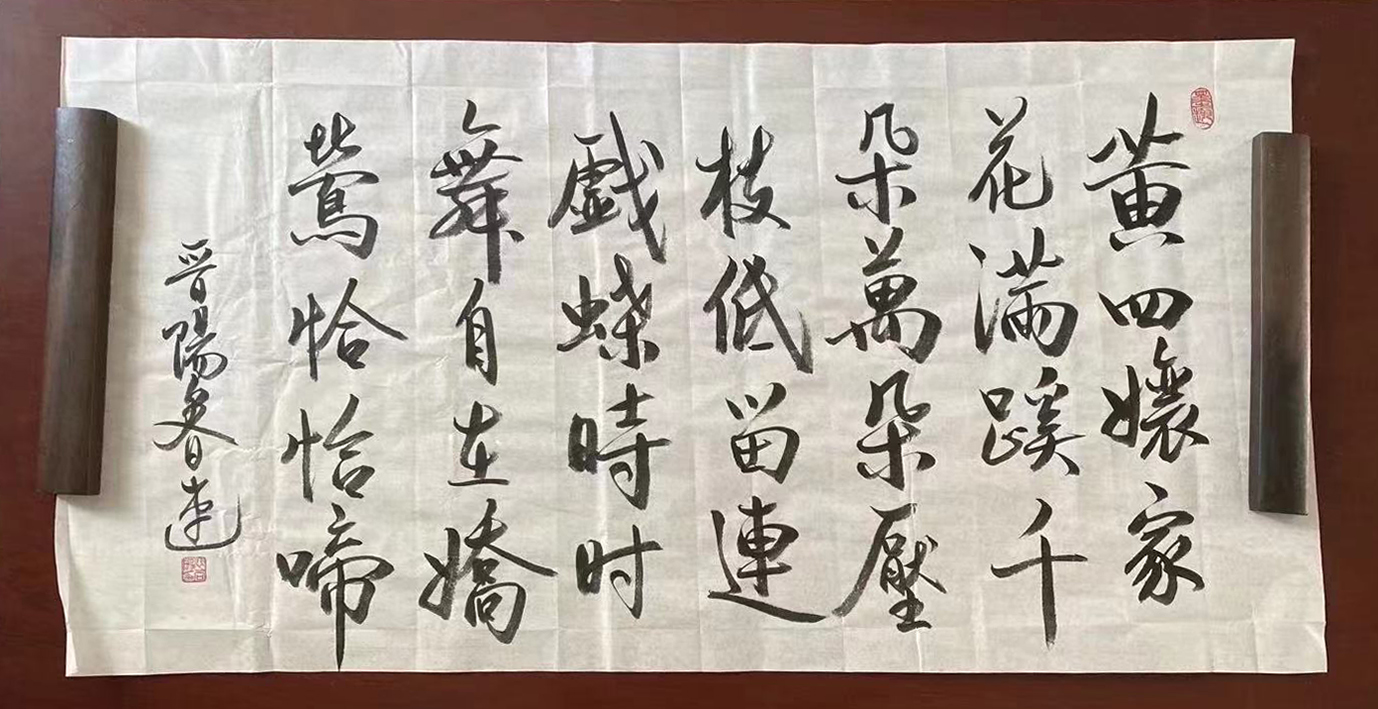 黄四孃家
花满蹊千
朵萬朵壓
枝低留連
戲蝶時时
舞自在嬌
鶯恰恰啼
晋陽